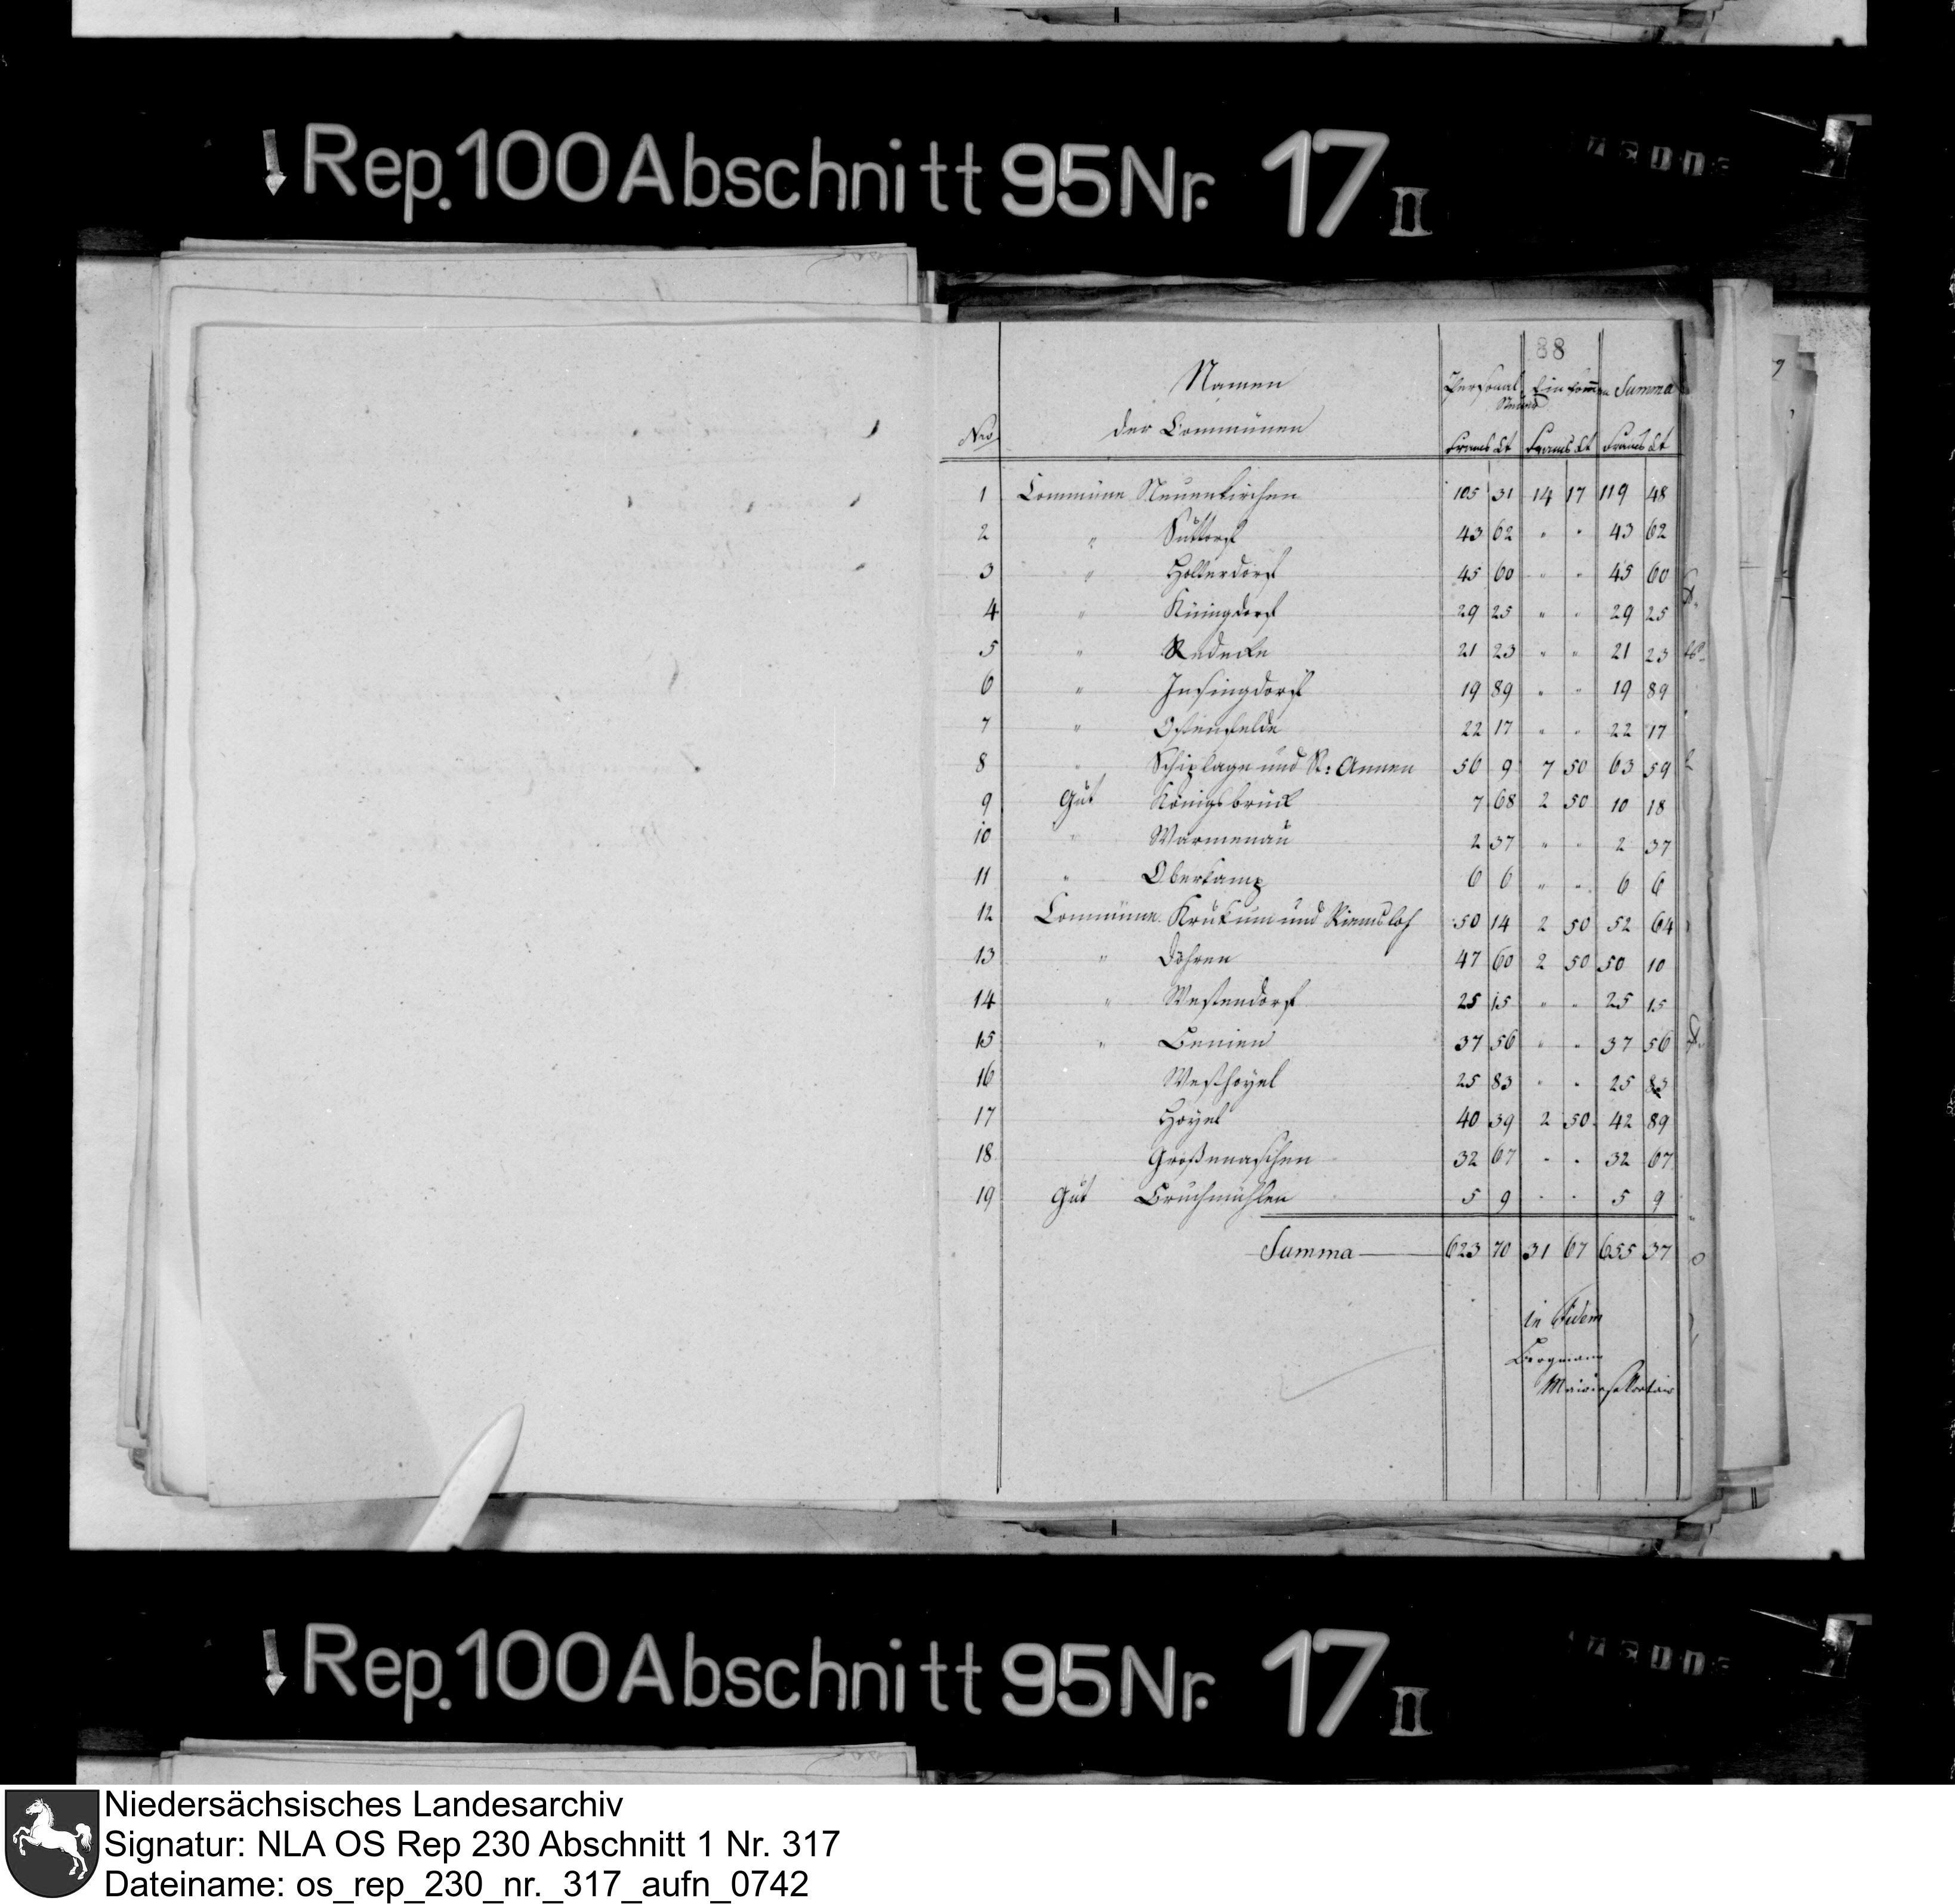 Rep. 100 Abschnitt 95 Nr. 17 II
88
Nro Namen der Communen Personal Steuer Einkommen Summa
Francs Ct Francs Ct Francs Ct
1 Commüne Neuenkirchen 105 31 14 17 119 48
2 " Suttorf 43 62 " " 43 62
3 " Holterdorf 45 60 " " 45 60
4 " Küingdorf 29 25 " " 29 25
5 " Redecke 21 23 " " 21 23
6 " Insingdorf 19 89 " " 19 89
7 " Ostenfelde 22 17 " " 22 17
8 " Schiplage und St: Annen 56 9 7 50 63 59
9 Gut Königsbrück 7 68 2 50 10 18
10 " Warmenau 2 37 " " 2 37
11 " Oberkamp 6 6 " " 6 6
12 Commüne Krukum und Riemsloh 50 14 2 50 52 64
13 " Döhren 47 60 2 50 50 10
14 " Westendorf 25 15 " " 25 15
15 " Bennien 37 56 " " 37 56
16 Westhoyel 25 83 " " 25 83
17 Hoyel 40 39 2 50 42 89
18 Großenaschen 32 67 " " 32 67
19 Gut Bruchmühlen 5 9 " " 5 9
Summa 623 70 31 67 655 37
in fidem
Bergmann
Mairiesekretair
Rep. 100 Abschnitt 95 Nr. 17 II
Niedersächsisches Landesarchiv
Signatur: NLA OS Rep 230 Abschnitt 1 Nr. 317
Dateiname: os_rep_230_nr._317_aufn_0742